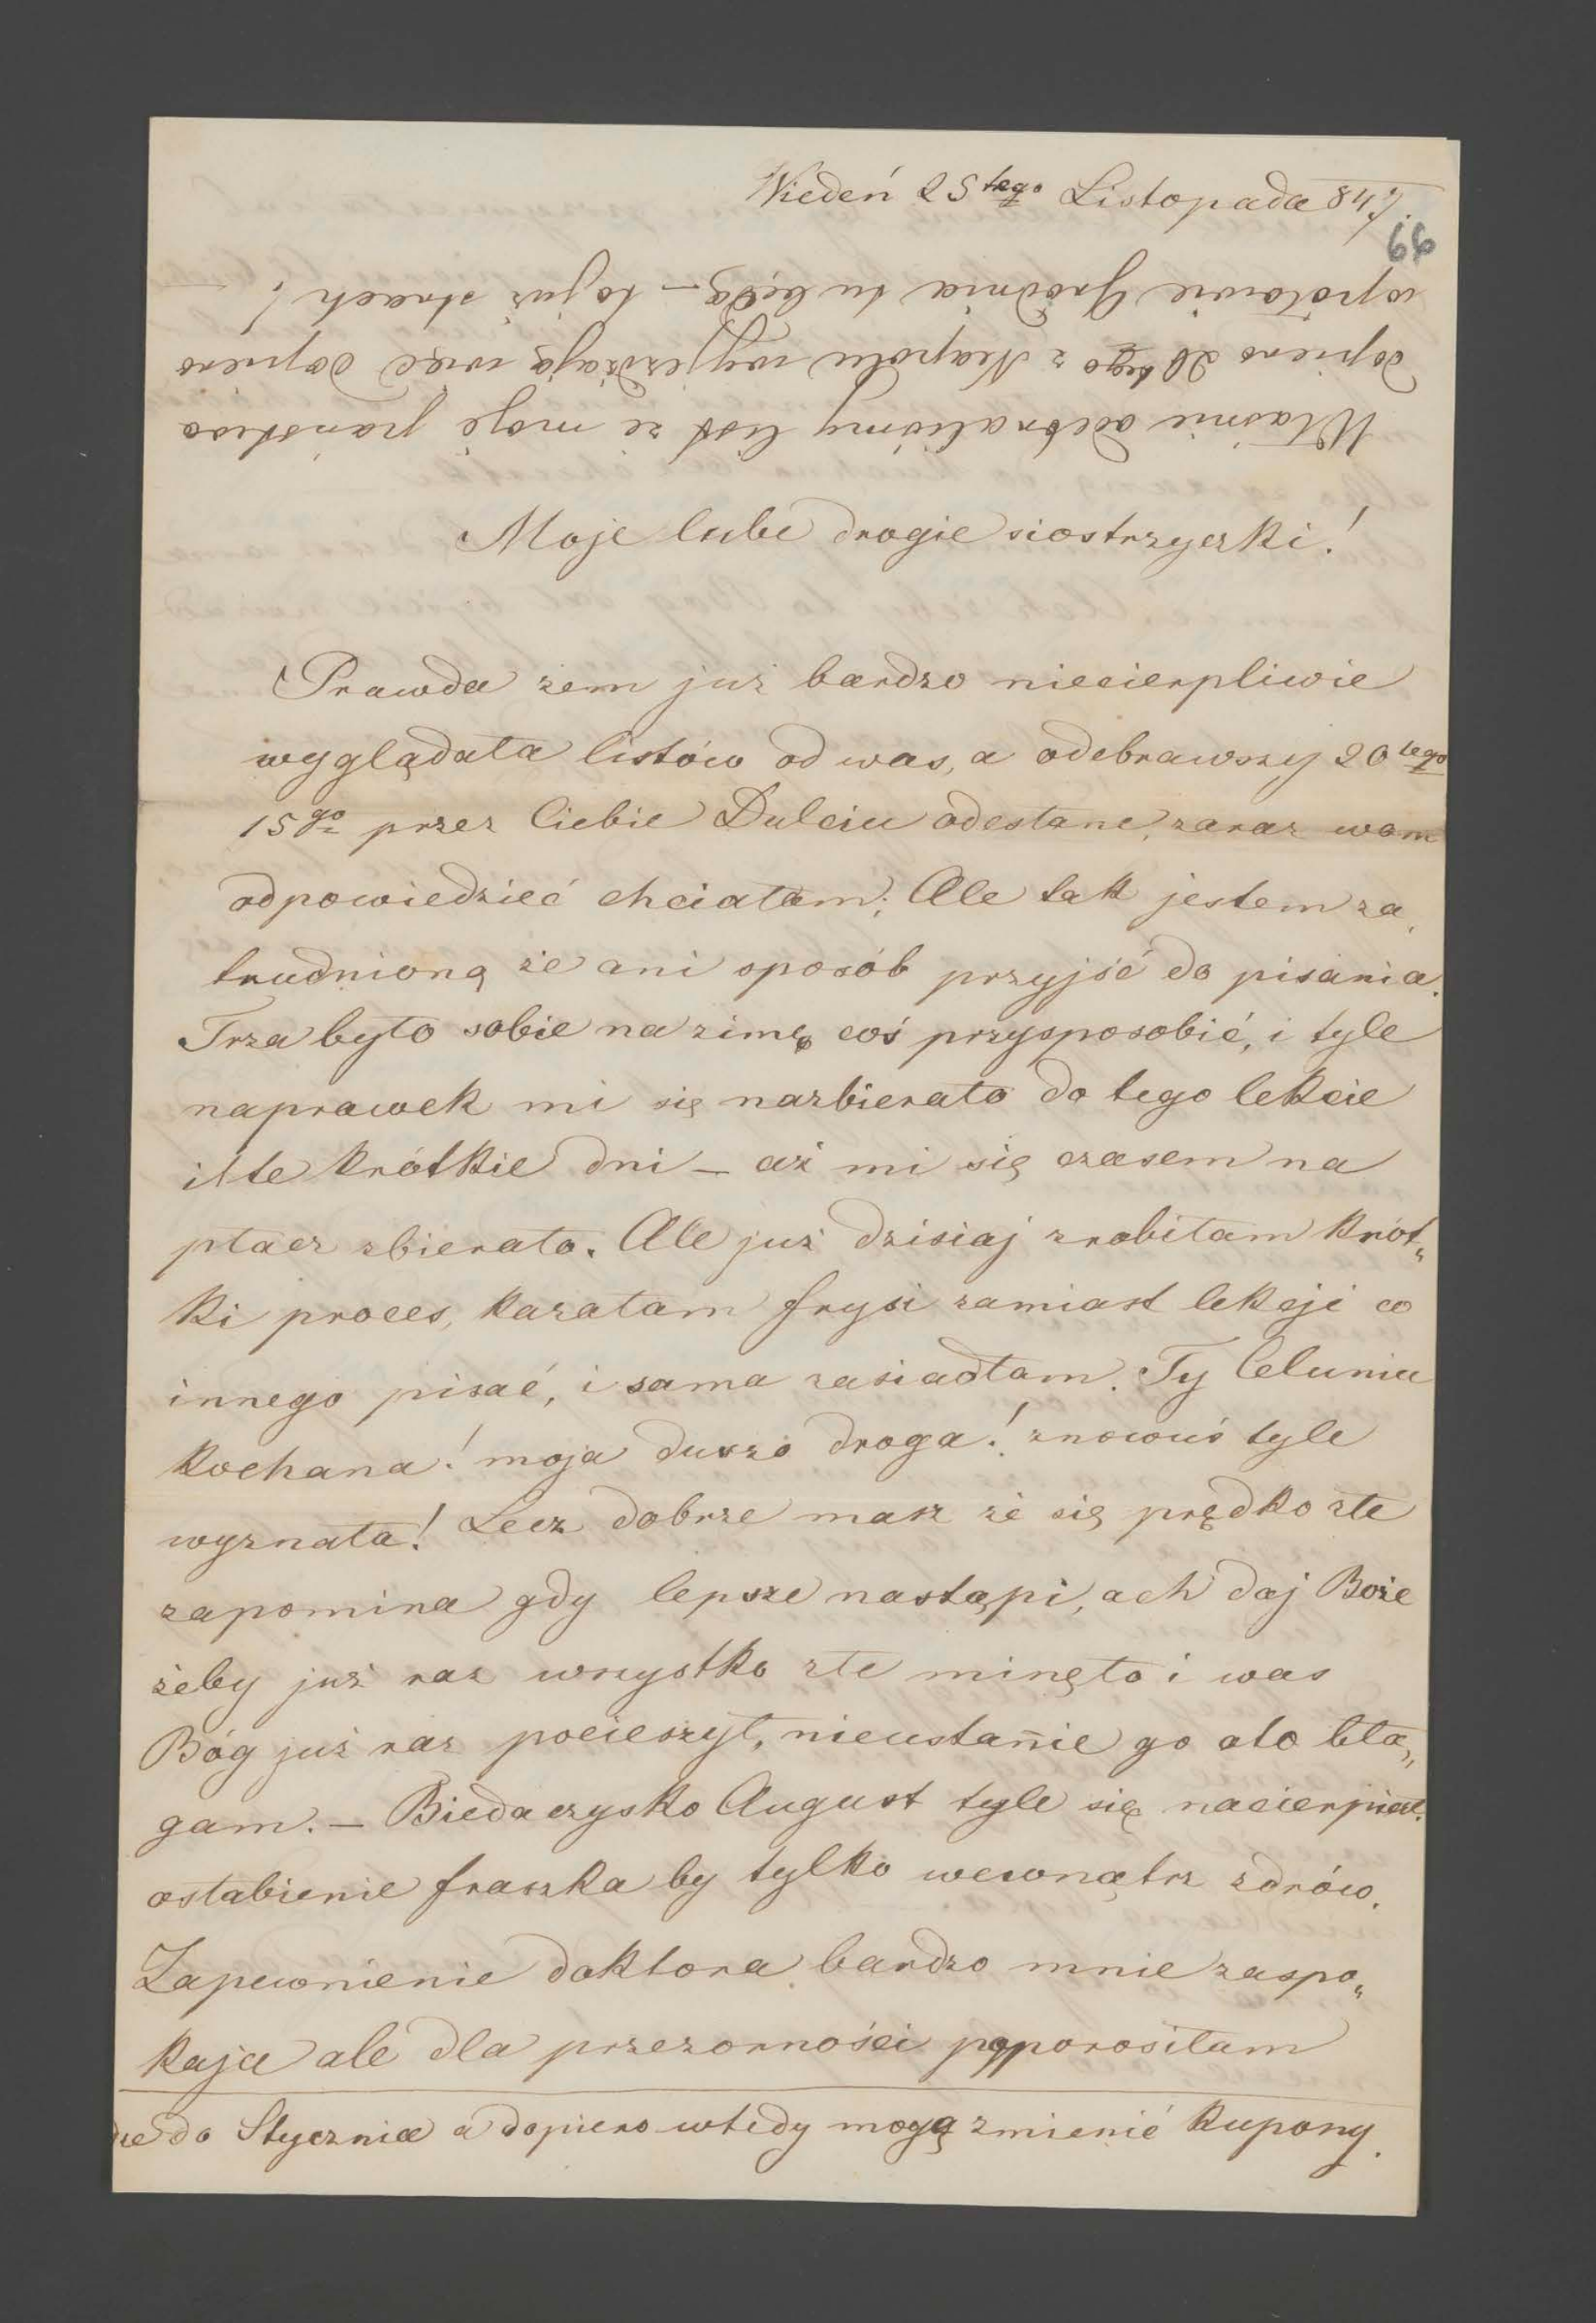 Wiedeń 25tego Listopada 847.
66
Właśnie odebraliśmy list że moje państwo
dopiero 20tego z Neapolu wyjeżdżają więc dopiero
w połowie Grudnia tu będą — to już strach!
Moje lube drogie siostrzyczki!
Prawda żem już bardzo niecierpliwie
wyglądała listów od was, a odebrawszy 20tego
15go przez Ciebie Dulciu odesłane, zaraz wam
odpowiedzieć chciałam; Ale tak jestem za„
trudnioną że ani sposób przyjść do pisania.
Trza było sobie na zimę coś przysposobić, i tyle
naprawek mi się nazbierało do tego lekcie
i te krótkie dni — aż mi się czasem na
płacz zbierało. Ale już dzisiaj zrobiłam krót„
ki proces, kazałam frysi zamiast lekcji co
innego pisać, i sama zasiadłam. Ty Celuniu
kochana! moja duszo droga! znowuś tyle
wyznała! Lecz dobrze masz że się prędko złe
zapomina gdy lepsze nastąpi, ach daj Boże
żeby już raz wszystko złe minęło i was
Bóg już raz pocieszył, nieustan̄ie go oto bła„
gam. — Biedaczysko August tyle się nacierpiał.
osłabienie fraszka by tylko wewnątrz zdrów.
Zapewnienie doktora bardzo mnie zaspo„
kaja ale dla przezorności poprosiłam
do Stycznia a dopiero wtedy mogą zmienić kupony.